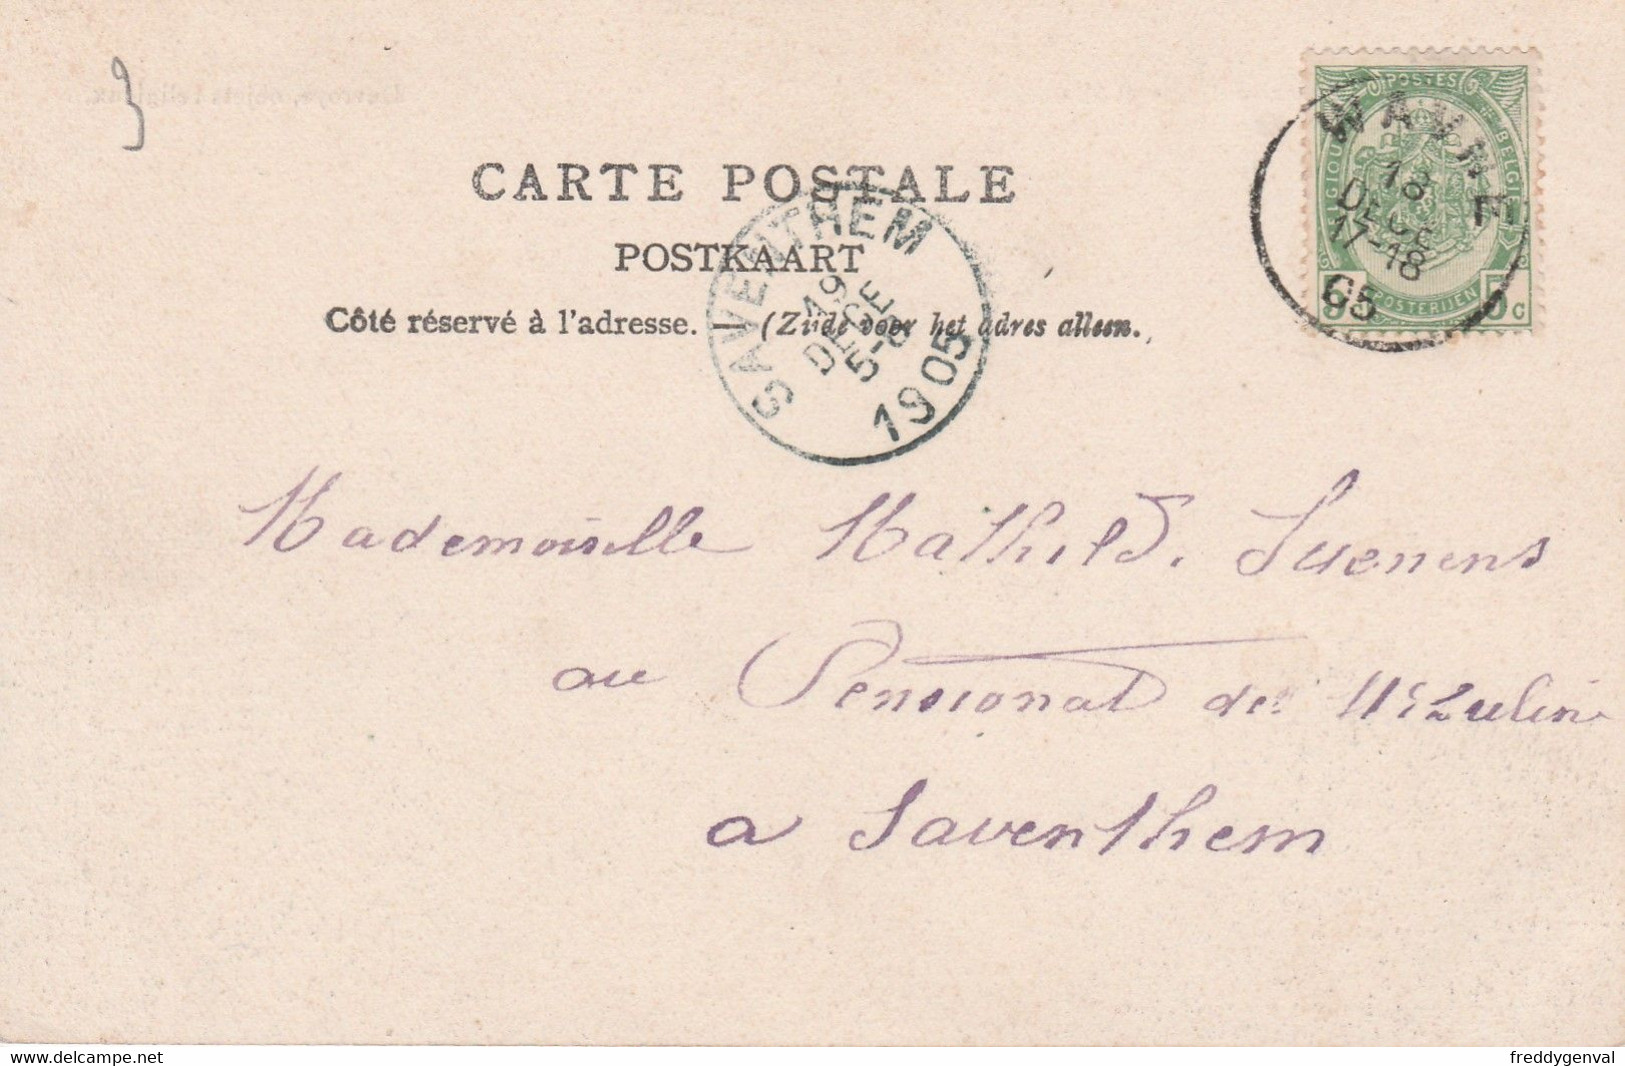 CARTE POSTALE
POSTKAART
Côté réservé à l'adresse. | (Zijde voor het adres alleen.
POSTES
BELGIQUE
BELGIË
POSTERIJEN
5 5c
WAVRE
18
DECE
17-18
05
SAVENTHEM
19
DECE
5-6
1905
Mademoiselle Mathild. Suenens
au Pensionat des Urzulin
a Saventhem
delcampe.net
freddygenval